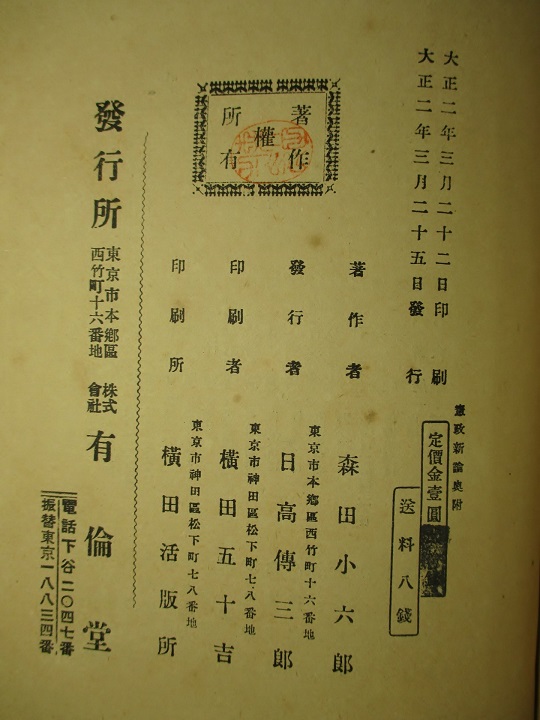 大正二年三月二十二日印刷
大正二年三月二十五日發行
憲政新論奥附
定價金壹圓
送料八錢
著作權所有
著作者
森田小六郎
東京市本鄕區西竹町十六番地
發行者
日高傳三郎
東京市神田區松下町七八番地
印刷者
橫田五十吉
東京市神田區松下町七八番地
印刷所
橫田活版所
發行所
東京市本鄕區
西竹町十六番地
株式
會社
有倫堂
電話下谷二〇四七番
振替東京一八八三四番